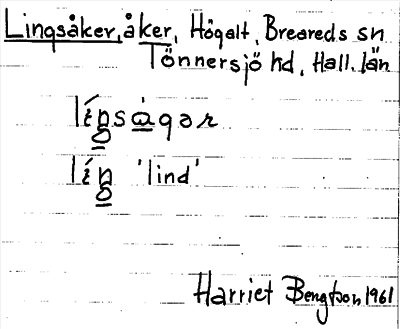 Lingsåker, åker, Högalt, Breareds sn
Tönnersjö hd, Hall. län
líŋsàgər
líŋ 'lind'
Harriet Bengtson 1961